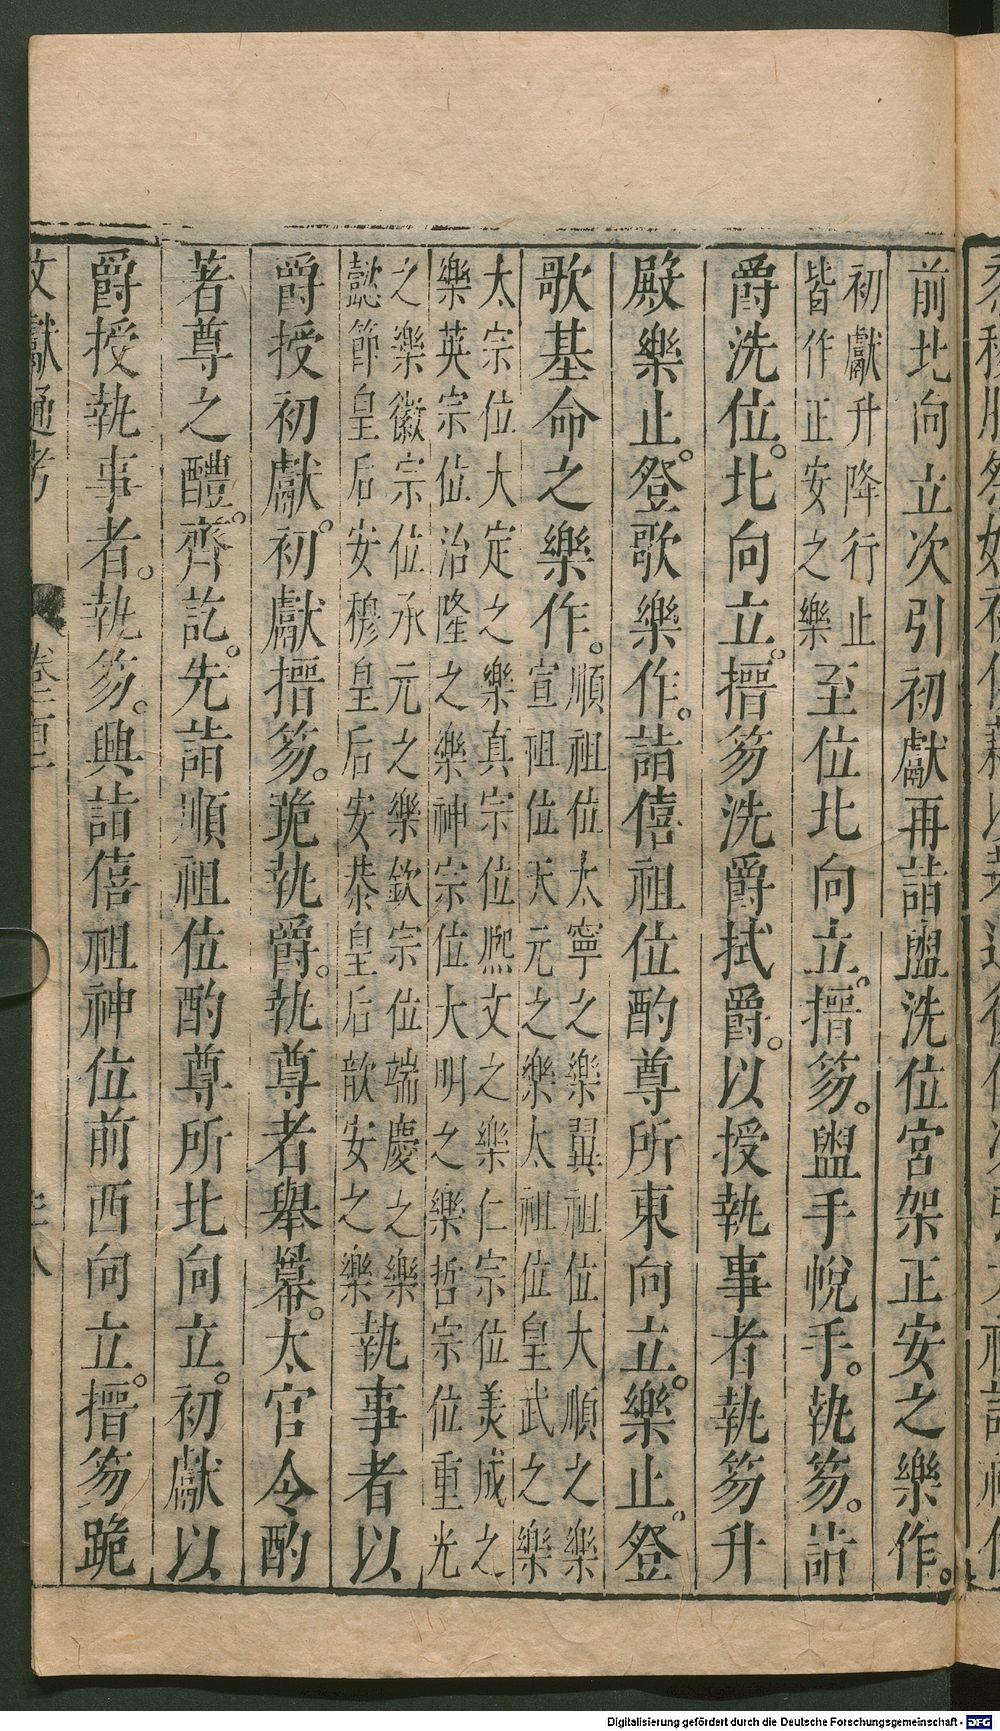 前北向立次引初獻再詣盥洗位宮架正安之樂作。
初獻升降行止
皆作正安之樂
至位北向立。搢笏。盥手帨手。執笏。詣
爵洗位。北向立。搢笏洗爵拭爵。以授執事者執笏升
殿樂止。登歌樂作。詣僖祖位酌尊所東向立。樂止。登
歌基命之樂作。
順祖位太寧之樂翼祖位大順之樂
宣祖位天元之樂太祖位皇武之樂
太宗位大定之樂真宗位熙文之樂仁宗位美成之
樂英宗位治隆之樂神宗位大明之樂哲宗位重光
之樂徽宗位承元之樂欽宗位端慶之樂
懿節皇后安穆皇后安恭皇后歆安之樂
執事者以
爵授初獻。初獻搢笏。跪執爵。執尊者舉冪。太官令酌
著尊之醴。齊訖。先詣順祖位酌尊所北向立。初獻以
爵授執事者。執笏。興詣僖祖神位前西向立。搢笏跪
文獻通考
卷
十八
Digitalisierung gefördert durch die Deutsche Forschungsgemeinschaft - DFG